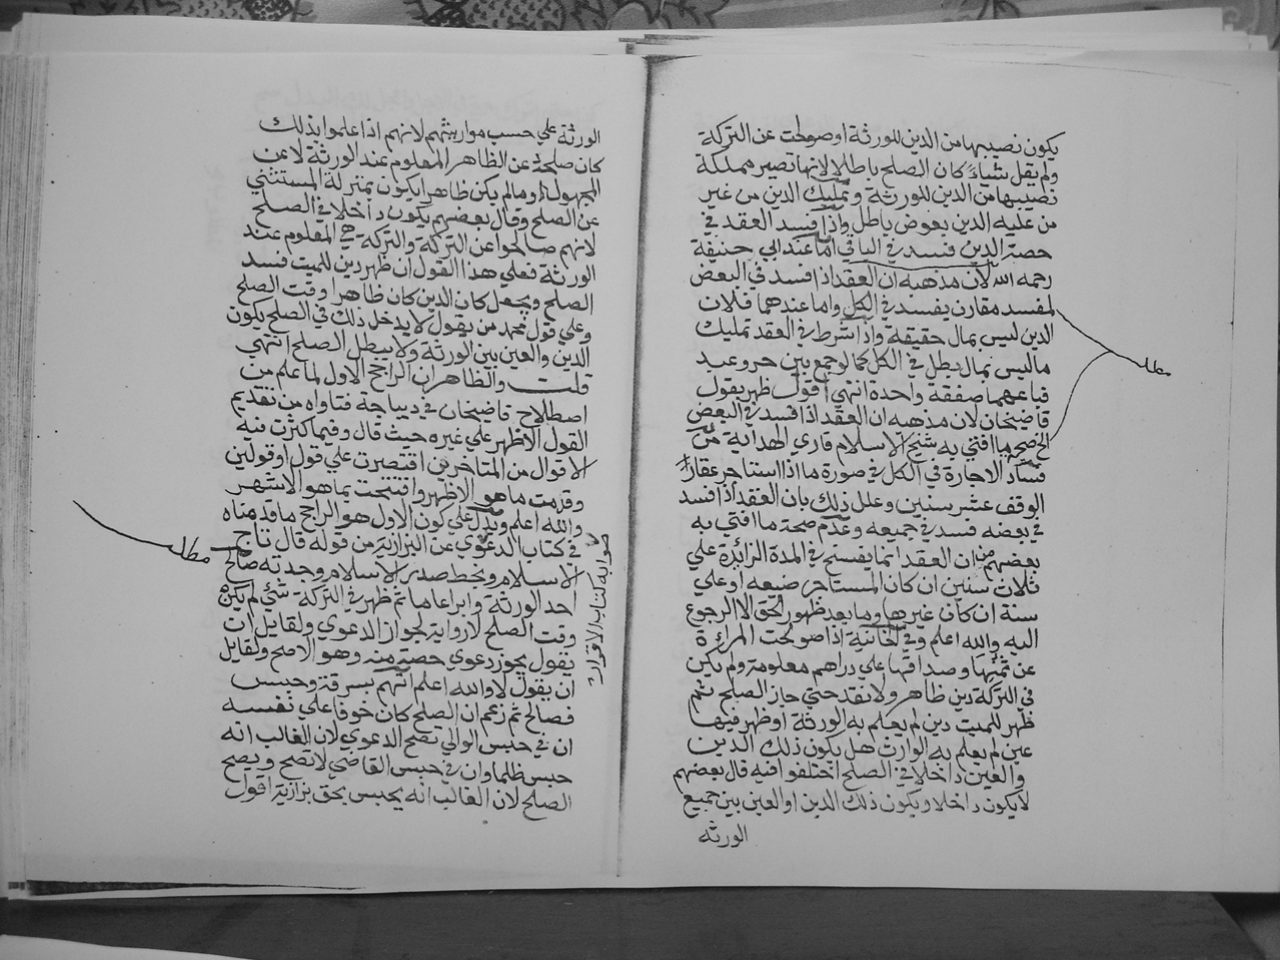 يكون نصيبها من الدين للورثة او صولحت عن التركة
ولم يقل شيئا كان الصلح باطلا لانها تصير مملكة
نصيبها من الدين للورثة وتمليك الدين من غير
من عليه الدين بعوض باطل واذا فسد العقد في
حصة الدين فسد في الباقي اما عند ابي حنيفة
رحمه الله لان مذهبه ان العقد اذا فسد في البعض
لمفسد مقارن يفسد في الكل واما عندهما فلان
الدين ليس بمال حقيقة واذا شرط في العقد تمليك
ما ليس بمال بطل في الكل كما لو جمع بين حر وعبد
فباعهما صفقة واحدة انتهى اقول ظهر بقول
قاضيخان لان مذهبه ان العقد اذا فسد في البعض
الخ صحة ما افتي به شيخ الاسلام قاري الهداية من
فساد الاجارة في الكل في صورة ما اذا استاجر عقار
الوقف عشر سنين وعلل ذلك بان العقد اذا فسد
في بعضه فسد في جميعه وعدم صحة ما افتي به
بعضهم من ان العقد انما يفسخ في المدة الزائدة علي
ثلاث سنين ان كان المستاجر ضيعه او علي
سنة ان كان غيرها وما بعد ظهور الحق الا الرجوع
اليه والله اعلم وفي الخانية اذا صولحت المراة
عن ثمنها وصداقها علي دراهم معلومة ولم يكن
في التركة دين ظاهر ولا نقد حتي جاز الصلح ثم
ظهر للميت دين لم يعلم به الورثة او ظهر فيها
عين لم يعلم به الوارث هل يكون ذلك الدين
والعين داخلا في الصلح اختلفوا فيه قال بعضهم
لا يكون داخلا ويكون ذلك الدين او العين بين جميع
الورثه
مطلب
الورثة علي حسب مواريثهم لانهم اذا علموا بذلك
كان صلحهم عن الظاهر المعلوم عند الورثة لا عن
المجهول وما لم يكن ظاهرا يكون بمنزلة المستثني
عن الصلح وقال بعضهم يكون داخلا في الصلح
لانهم صالحوا عن التركة والتركة هي المعلوم عند
الورثة فعلي هذا القول ان ظهر دين للميت فسد
الصلح ويجعل كان الدين كان ظاهرا وقت الصلح
وعلي قول محمد من يقول لا يدخل ذلك في الصلح يكون
الدين والعين بين الورثة ولا يبطل الصلح انتهى
قلت والظاهر ان الراجح الاول لما علم من
اصطلاح قاضيخان في ديباجة فتاواه من تقديم
القول الاظهر علي غيره حيث قال وفيما كثرت فيه
الاقوال من المتاخرين اقتصرت علي قول او قولين
وقدمت ما هو الاظهر وافتتحت بما هو الاشهر
والله اعلم ويدل علي كون الاول هو الراجح ما قدمناه
في كتاب الدعوي عن البزازية من قوله قال تاج
الاسلام وبخط صدر الاسلام وجدته صالح
احد الورثة وابرا عاما ثم ظهر في التركة شئ لم يكن
وقت الصلح لا رواية لجواز الدعوي ولقايل ان
يقول يجوز دعوي حصته منه وهو الاصح ولقايل
ان يقول لا والله اعلم اتهم بسرقة وحبس
فصالح ثم زعم ان الصلح كان خوفا علي نفسه
ان في حبس الوالي تصح الدعوي لان الغالب انه
حبس ظلما وان في حبس القاضي لا تصح ويصح
الصلح لان الغالب انه يحبس بحق بزازية اقول
صوابه كتاب الاقرار
مطلب